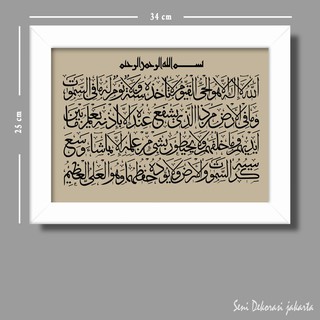 34 cm
25 cm
بسم الله الرحمن الرحيم
الله لا إله إلا هو الحي القيوم لا تأخذه سنة ولا نوم له ما في السموت
وما في الأرض من ذا الذي يشفع عنده إلا بإذنه يعلم ما بين
أيديهم وما خلفهم ولا يحيطون بشيء من علمه إلا بما شاء وسع
كرسيه السموت والأرض ولا يؤده حفظهما وهو العلي العظيم
Seni Dekorasi jakarta